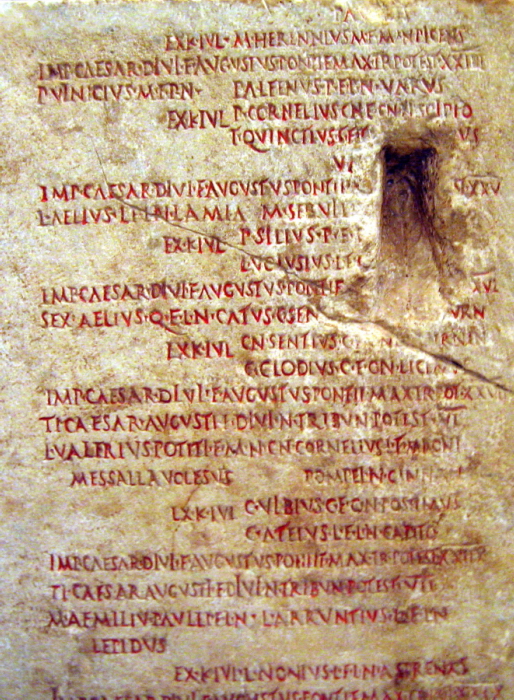 EX·K·IVL·M·HERENNIVS·M·F·M·N·PICENS
IMP·CAESAR·DIVI·F·AVGVSTVS·PONTIF·MAX·TR·POTEST·XXIII
P·VINICIVS·M·F·P·N· P·ALFENVS·P·F·P·N·VARVS
EX·K·IVL P·CORNELIVS·CN·F·CN·N·SCIPIO
T·QVINCTIVS VS
IMP·CAESAR·DIVI·F·AVGVSTVS·PONTIF XXV
L·AELIVS·L·F·L·N·LAMIA M·SERVILI
EX·K·IVL P·SILIVS·P·F
L·VOLVSIVS·L·F
IMP·CAESAR·DIVI·F·AVGVSTVS·PONTIF XVI
SEX·AELIVS·Q·F·L·N·CATVS·C·SEN VRN
EX·K·IVL CN·SENTIVS VRNIN
C·CLODIVS·C·F·CN·LICIN
IMP·CAESAR·DIVI·F·AVGVSTVS·PONTIF·MAX·TR·POT·XXVII
TI·CAESAR·AVGVSTI·F·DIVI·N·TRIBVN·POTEST·VI
L·VALERIVS·POTITI·F·M·N·CN·CORNELIVS·L·F·MAGNI
MESSALLA·VOLESVS POMPEI·N·CINNA
EX·K·IVL C·VIBIVS·C·F·C·N·POSTVMVS
C·ATEIVS·L·F·L·N·CAPITO
IMP·CAESAR·DIVI·F·AVGVSTVS·PONTIF·MAX·TR·POTEST·XXIIX
TI·CAESAR·AVGVSTI·F·DIVI·N·TRIBVN·POTEST·VII
M·AEMILIVS·PAVLLI·F·L·N· L·ARRVNTIVS·L·F·L·N
LEPIDVS
EX·K·IVL·L·NONIVS·L·F·L·N·ASPRENAS